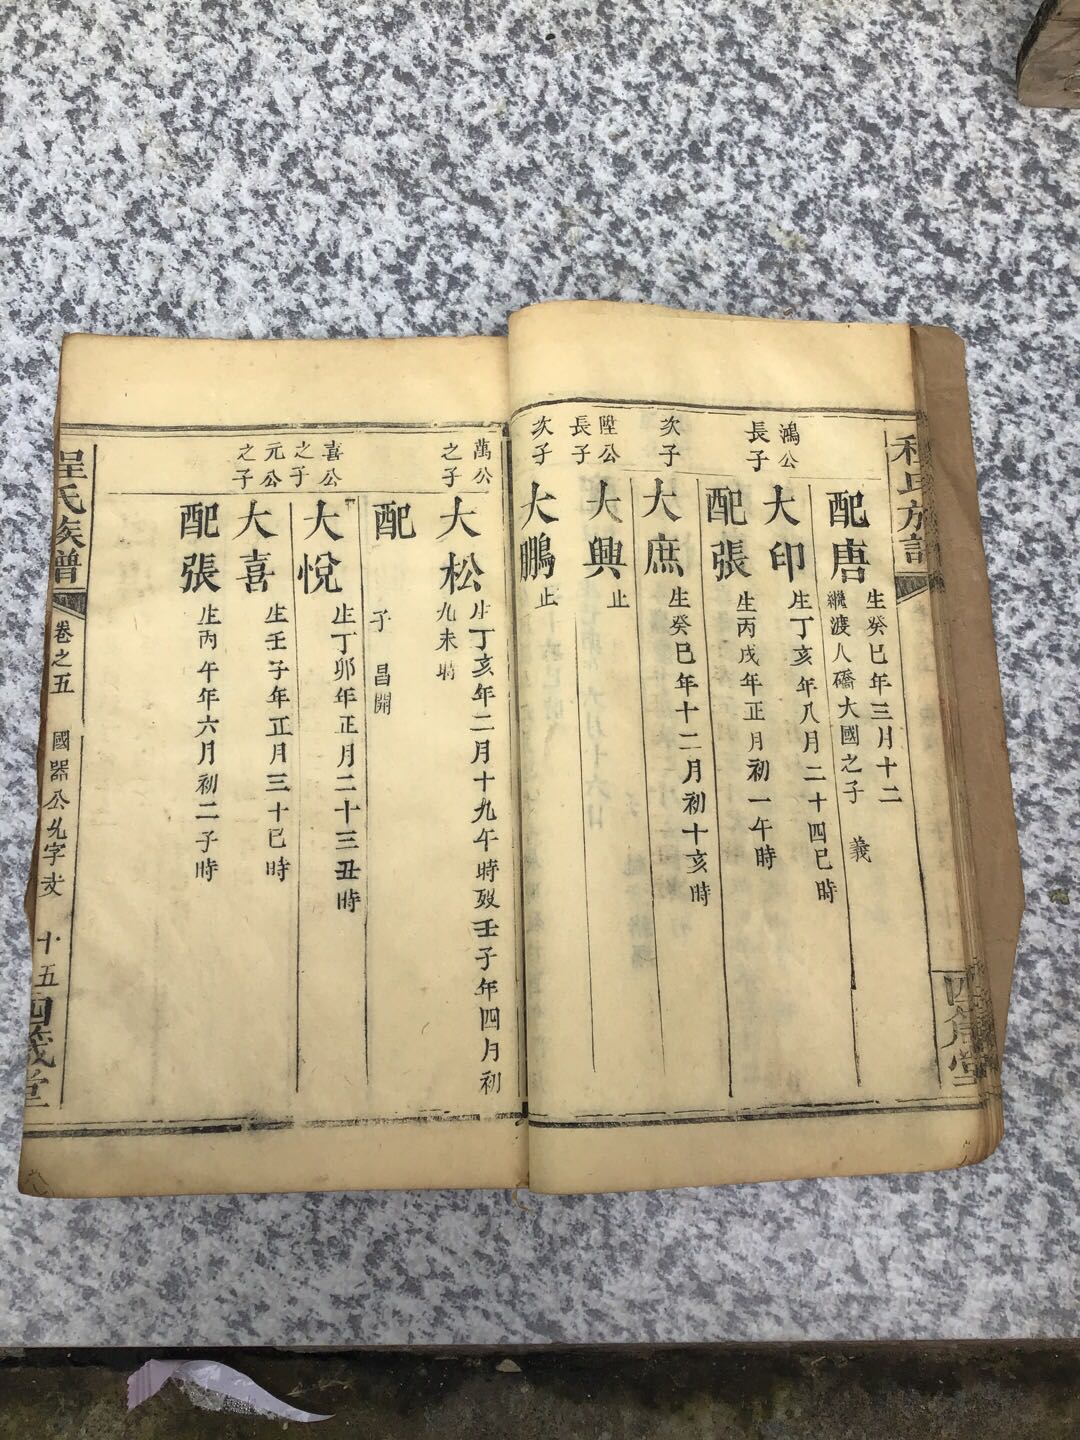 程氏族譜
配唐
生癸巳年三月十二
繼渡人礄大國之子 義
鴻公
長子
大印
生丁亥年八月二十四巳時
配張
生丙戌年正月初一午時
次子
大庶
生癸巳年十二月初十亥時
陞公
長子
大興
止
次子
大鵬
止
萬公
之子
大松
生丁亥年二月十九午時歿壬子年四月初
九未時
配
子 昌開
喜公
之子
大悅
生丁卯年正月二十三丑時
元公
之子
大喜
生壬子年正月三十巳時
配張
生丙午年六月初二子時
程氏族譜
卷之五
國器公允字
十五
四箴堂